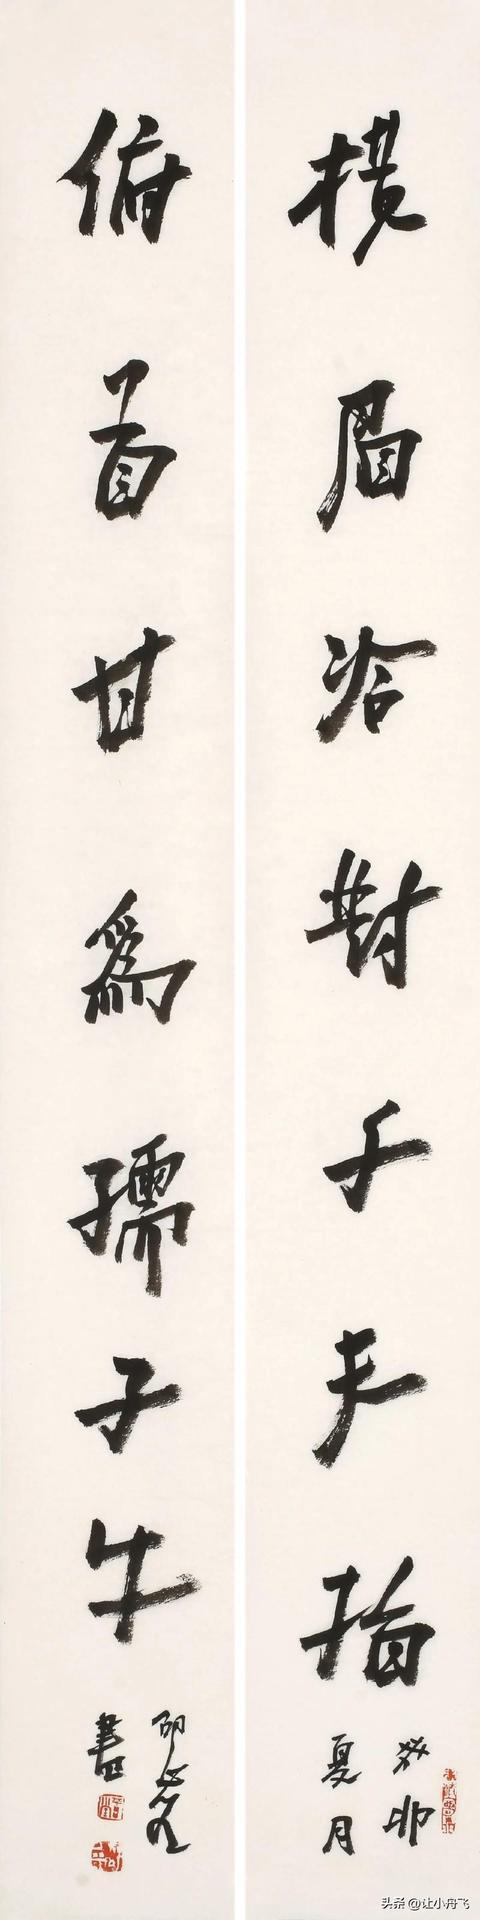 横眉冷對千夫指
癸卯
夏月
俯首甘為孺子牛
書
头条 @让小舟飞